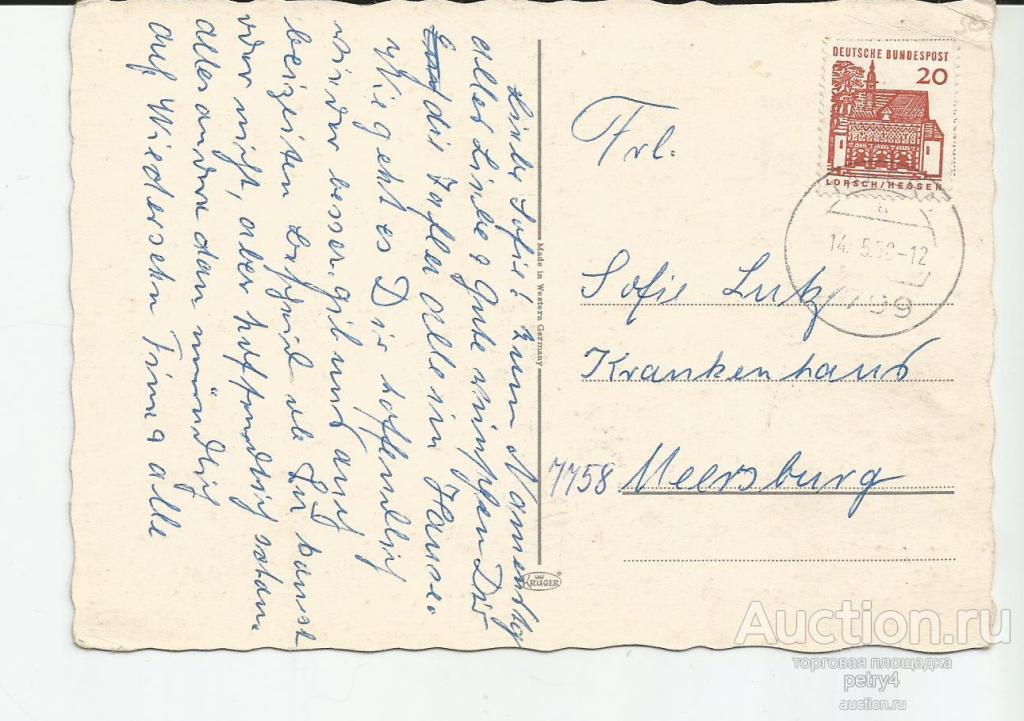 Liebe Sofie! Zum Namenstag
alles Liebe & Gute wünschen Dir
die Tafler alle im Hause.
Wie geht es Dir hoffentlich
wieder besser, gib uns auch
beizeiten Bescheid ob Du kanst
oder nicht, aber hoffendlich schon
alles andere dan mündlich
auf Wiedersehn Fina & alle
Made in Western Germany
KRÜGER
DEUTSCHE BUNDESPOST
20
LORSCH/HESSEN
14.-5.68-12
799
Frl.
Sofie Lutz
Krankenhaus
7758 Meersburg
Auction.ru
торговая площадка
petry4
auction.ru